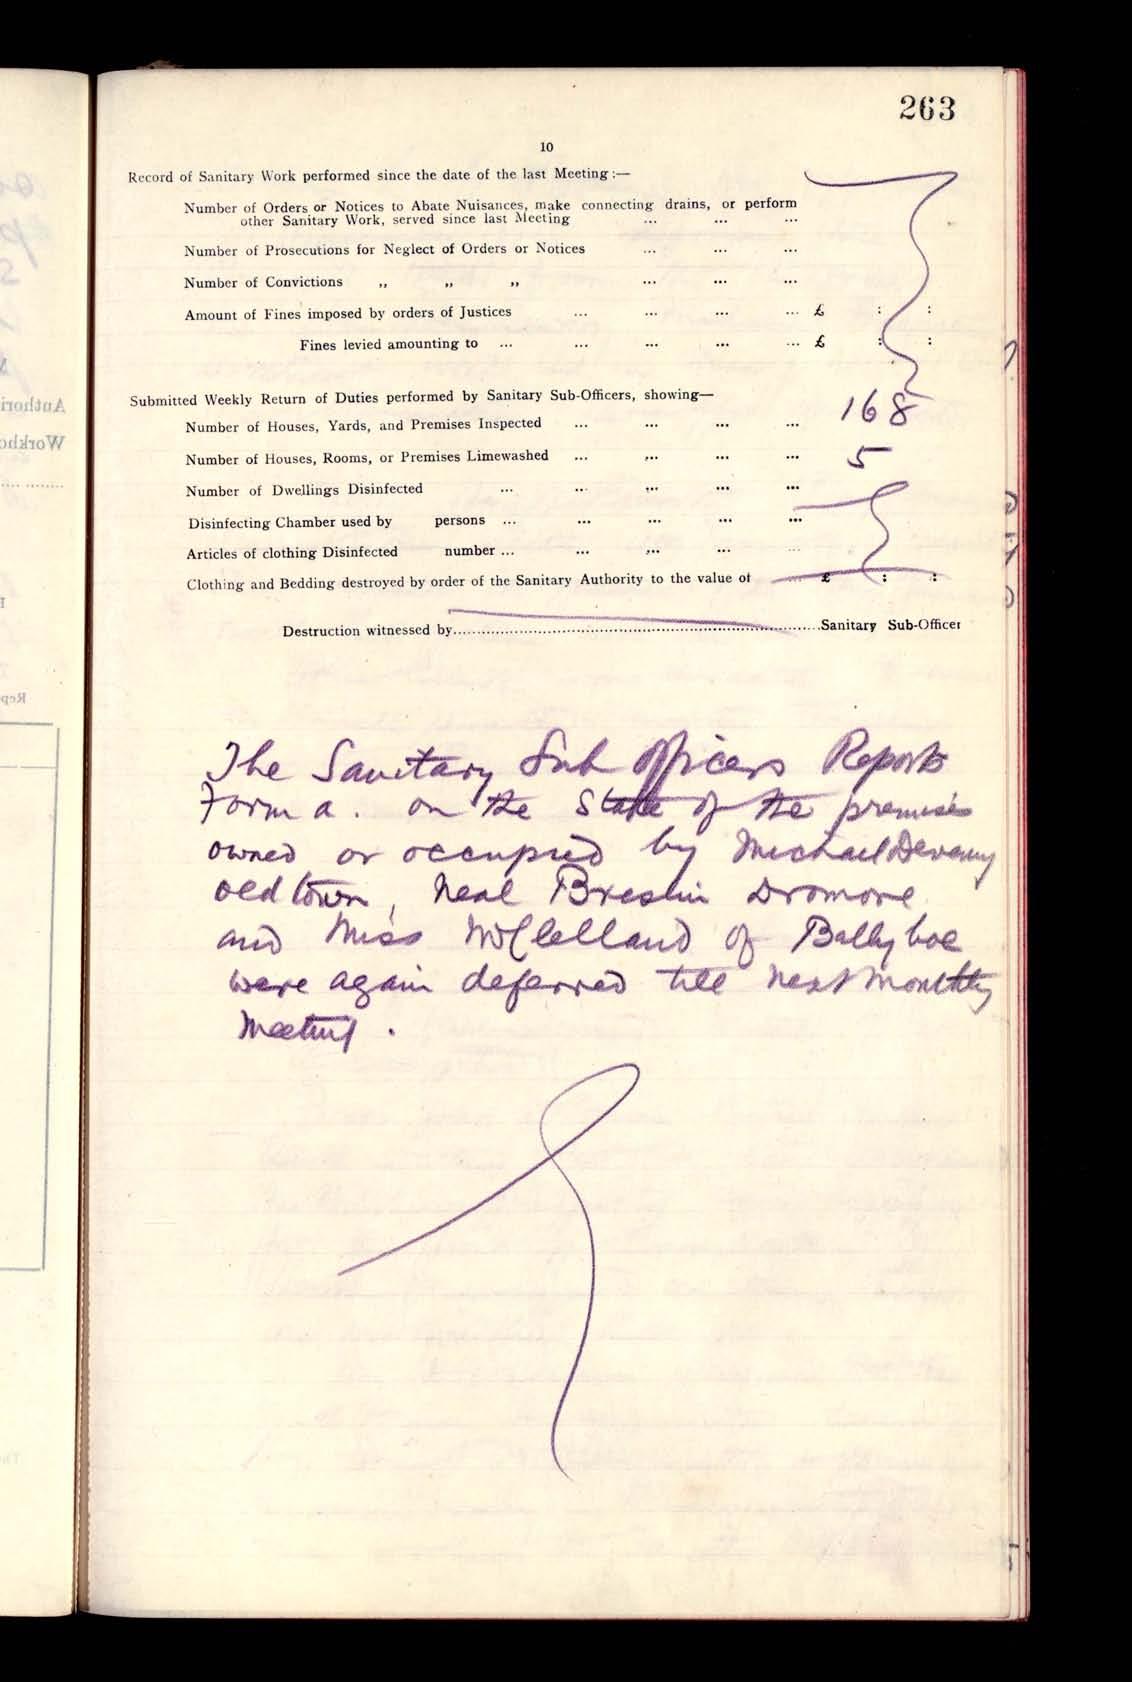 263
10
Record of Sanitary Work performed since the date of the last Meeting :—
Number of Orders or Notices to Abate Nuisances, make connecting drains, or perform
other Sanitary Work, served since last Meeting ... ... ...
Number of Prosecutions for Neglect of Orders or Notices ... ... ...
Number of Convictions „ „ „ ... ... ...
Amount of Fines imposed by orders of Justices ... ... ... ... £ : :
Fines levied amounting to ... ... ... ... ... £ : :
Submitted Weekly Return of Duties performed by Sanitary Sub-Officers, showing—
Number of Houses, Yards, and Premises Inspected ... ... ... ... 168
Number of Houses, Rooms, or Premises Limewashed ... ... ... ... 5
Number of Dwellings Disinfected ... ... ... ... ...
Disinfecting Chamber used by persons ... ... ... ... ...
Articles of clothing Disinfected number ... ... ... ... ...
Clothing and Bedding destroyed by order of the Sanitary Authority to the value of ... £ : :
Destruction witnessed by..........Sanitary Sub-Officer
The Sanitary Sub Officers Reports
Form a. on the State of the premises
owned or occupied by Michael Devenny
oldtown, Neal Breslin Dromore
and Miss McClelland of Ballyboe
were again deferred till next monthly
meeting.
Authori
Workho
Rep